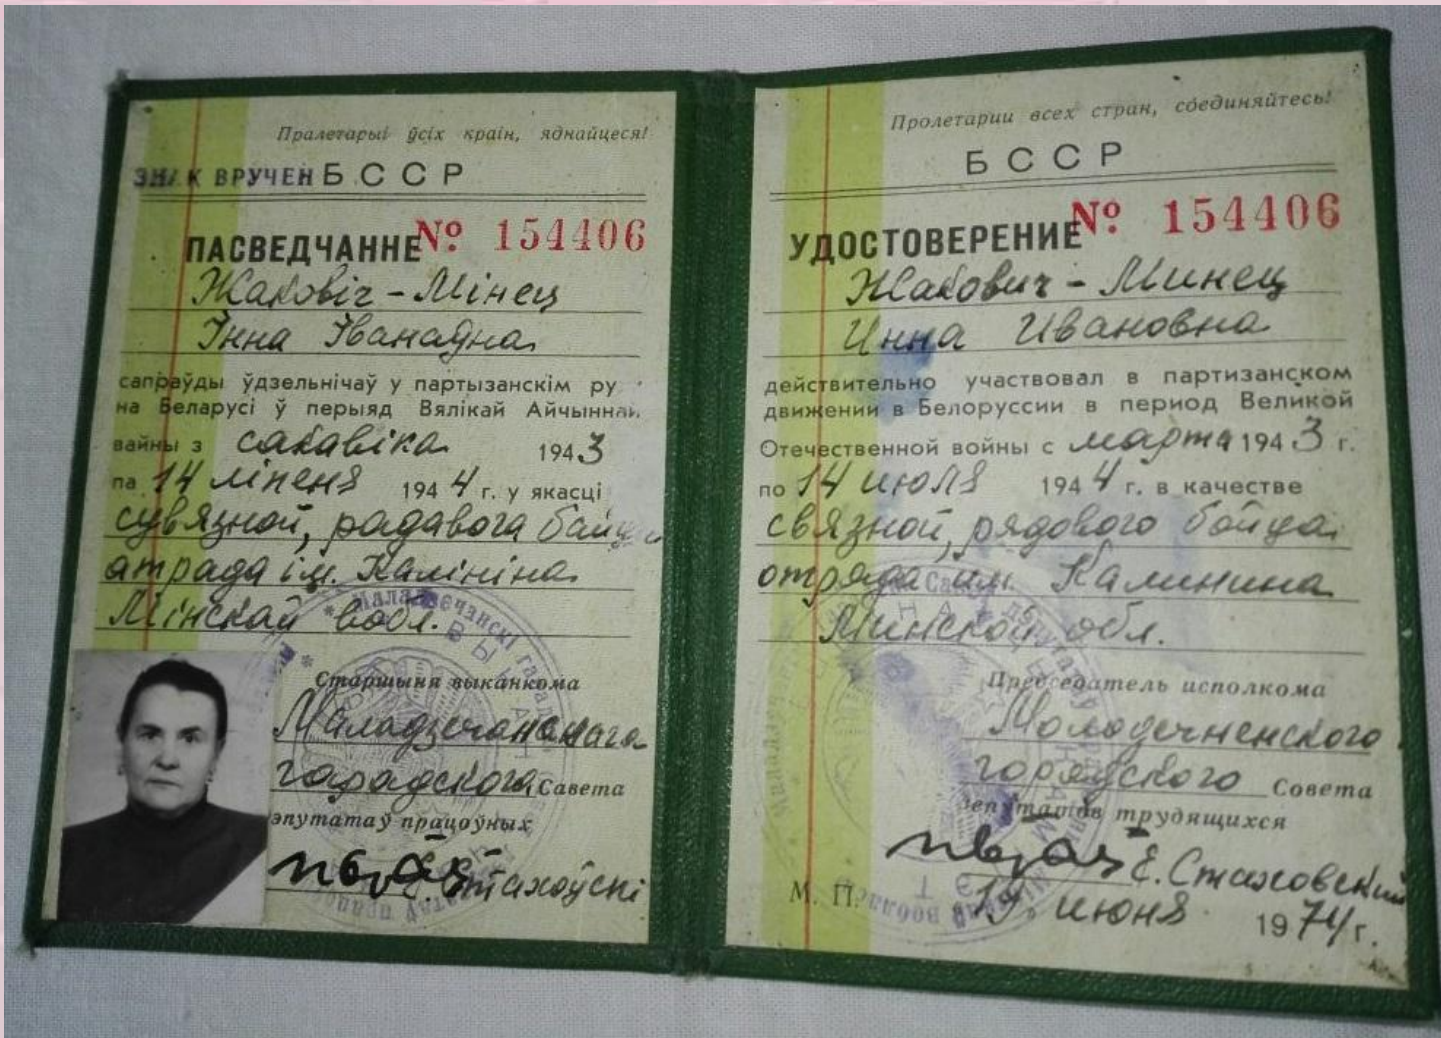 Пралетарыі ўсіх краін, яднайцеся!
ЗНАК ВРУЧЕН БССР
ПАСВЕДЧАННЕ № 154406
Жаковіч - Мінец
Інна Іванаўна
сапраўды ўдзельнічаў у партызанскім ру
на Беларусі ў перыяд Вялікай Айчыннай
вайны з сакавіка 1943
па 14 ліпеня 1944 г. у якасці
сувязной, радавога байца
атрада ім. Калініна
Мінскай вобл.
Старшыня выканкома
Маладзечанскага
гарадскога Савета
эпутатаў працоўных
Стахоўскі
Пролетарии всех стран, соединяйтесь!
БССР
УДОСТОВЕРЕНИЕ № 154406
Жакович - Минец
Инна Ивановна
действительно участвовал в партизанском
движении в Белоруссии в период Великой
Отечественной войны с марта 1943 г.
по 14 июля 1944 г. в качестве
связной, рядового бойца
отряда им. Калинина
Минской обл.
Председатель исполкома
Молодечненского
городского Совета
депутатов трудящихся
Е. Стаховский
М. П. 19 июня 1974 г.